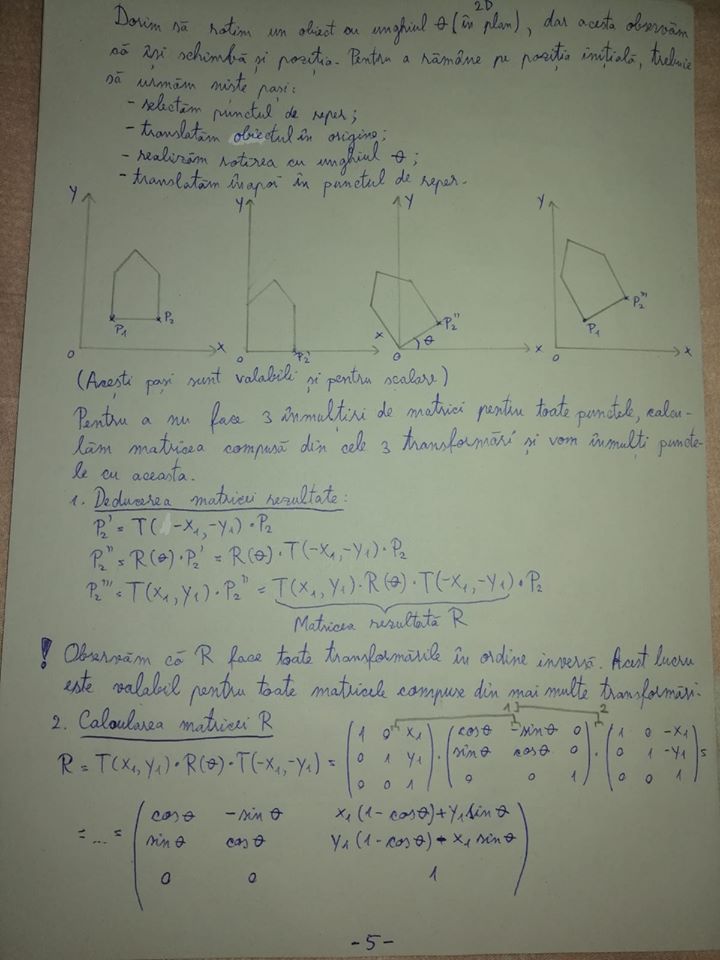 2D
Dorim să rotim un obiect cu unghiul θ (în plan), dar acesta observăm
să își schimbă și poziția. Pentru a rămâne pe poziția inițială, trebuie
să urmăm niste pași:
- selectăm punctul de reper;
- translatăm obiectul în origine;
- realizăm rotirea cu unghiul θ;
- translatăm înapoi în punctul de reper.
Y Y Y Y
P₁ P₂ P₂' P₂'' θ P₁ P₂'''
0 X 0 X 0 X 0 X
(Acești pași sunt valabili și pentru scalare)
Pentru a nu face 3 înmulțiri de matrici pentru toate punctele, calcu-
lăm matricea compusă din cele 3 transformări și vom înmulți puncte-
le cu aceasta.
1. Deducerea matricei rezultate:
P₂' = T(-x₁, -y₁) · P₂
P₂'' = R(θ) · P₂' = R(θ) · T(-x₁, -y₁) · P₂
P₂''' = T(x₁, y₁) · P₂'' = T(x₁, y₁) · R(θ) · T(-x₁, -y₁) · P₂
Matricea rezultată R
! Observăm că R face toate transformările în ordine inversă. Acest lucru
este valabil pentru toate matricele compuse din mai multe transformări.
2. Calcularea matricei R
1 2
1 0 x₁ cosθ -sinθ 0 1 0 -x₁
R = T(x₁, y₁) · R(θ) · T(-x₁, -y₁) = 0 1 y₁ · sinθ cosθ 0 · 0 1 -y₁ =
0 0 1 0 0 1 0 0 1
cosθ -sinθ x₁(1-cosθ)+y₁sinθ
= ... = sinθ cosθ y₁(1-cosθ)-x₁sinθ
0 0 1
-5-